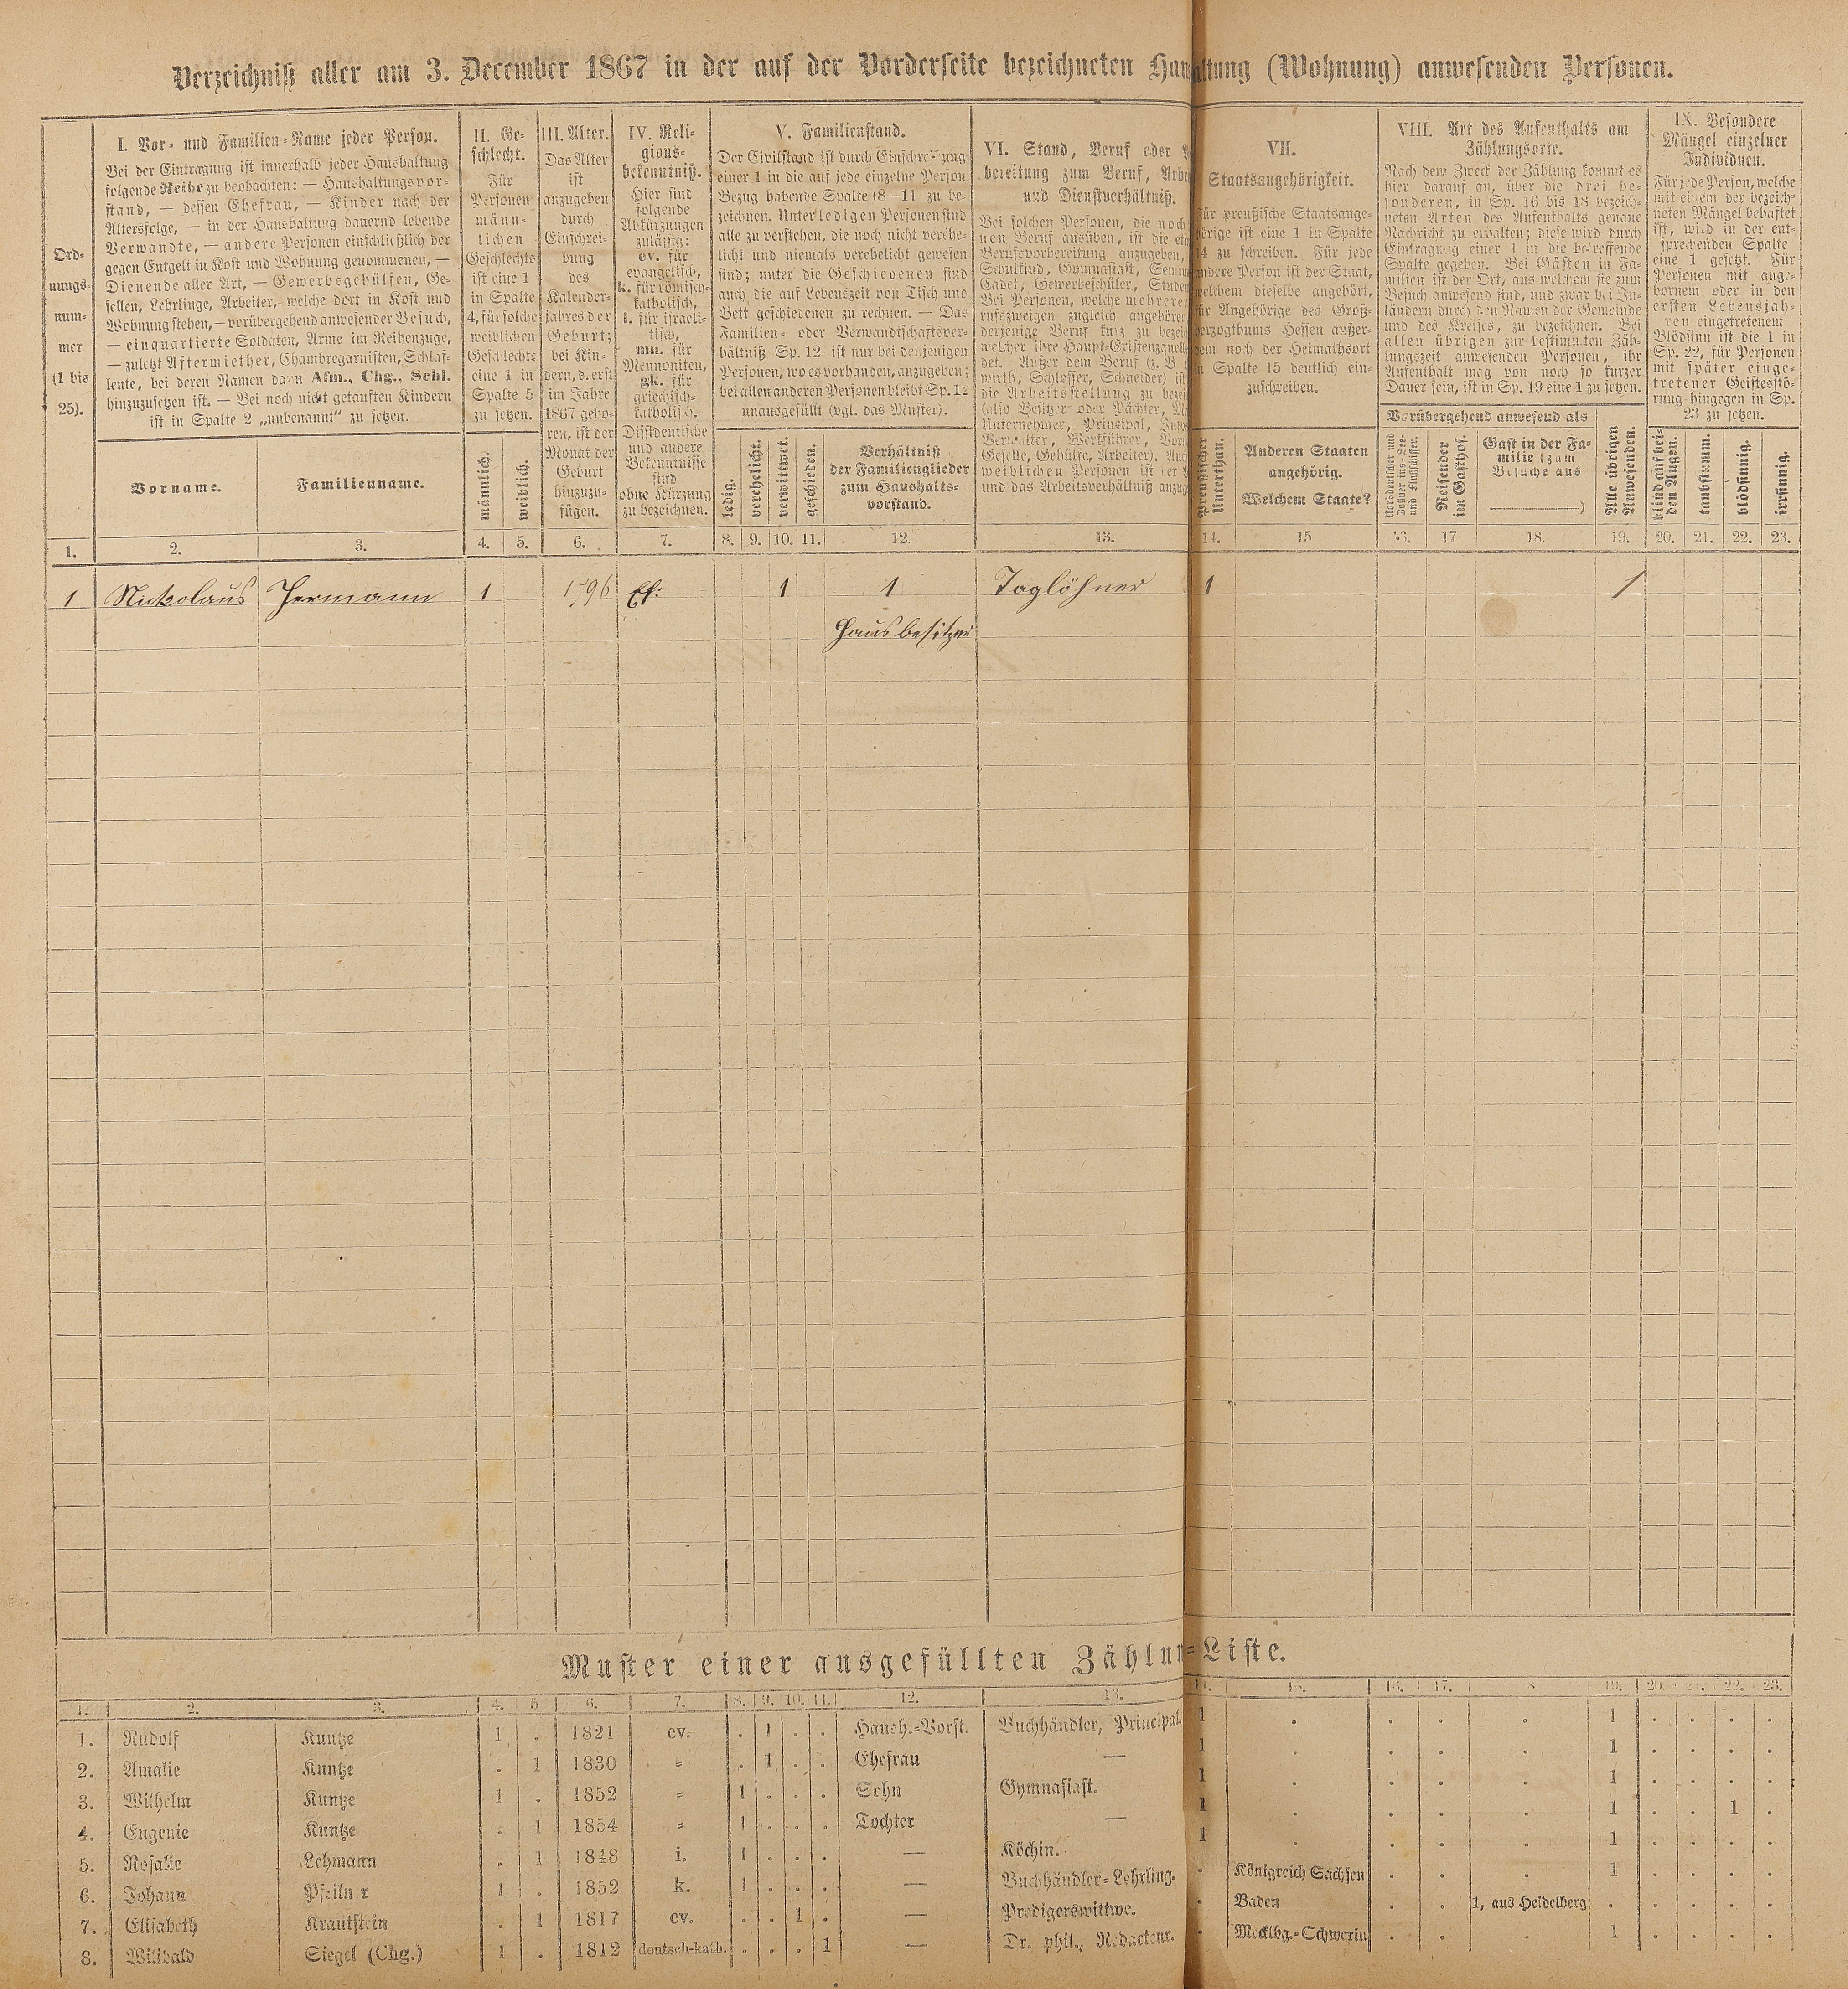 Verzeichniß aller am 3. December 1867 in der auf der Vorderseite bezeichneten Haushaltung (Wohnung) anwesenden Personen.
Ord-
nungs-
num-
mer
(1 bis
25).
I. Vor- und Familien-Name jeder Person.
Bei der Eintragung ist innerhalb jeder Haushaltung
folgende Reihe zu beobachten: — Haushaltungsvor-
stand, — dessen Ehefrau, — Kinder nach der
Altersfolge, — in der Haushaltung dauernd lebende
Verwandte, — andere Personen einschließlich der
gegen Entgelt in Kost und Wohnung genommenen, —
Dienende aller Art, — Gewerbsgehülfen, Ge-
sellen, Lehrlinge, Arbeiter, welche dort in Kost und
Wohnung stehen, — vorübergehend anwesender Besuch,
— einquartierte Soldaten, Arme im Reihenzuge,
— zuletzt Aftermiether, Chambregarnisten, Schlaf-
leute, bei deren Namen dann Afm., Chg., Schl.
hinzuzusetzen ist. — Bei noch nicht getauften Kindern
ist in Spalte 2 „unbenannt“ zu setzen.
Vorname.
Familienname.
II. Ge-
schlecht.
Für
Personen
männ-
lichen
Geschlechts
ist eine 1
in Spalte
4, für solche
weiblichen
Geschlechts
eine 1 in
Spalte 5
zu setzen.
männlich.
weiblich.
III. Alter.
Das Alter
ist
anzugeben
durch
Einschrei-
bung
des
Kalender-
jahres der
Geburt;
bei Kin-
dern, d. erst
im Jahre
1867 gebo-
ren, ist der
Monat der
Geburt
hinzuzu-
fügen.
IV. Reli-
gions-
bekenntniß.
Hier sind
folgende
Abkürzungen
zulässig:
ev. für
evangelisch,
k. für römisch-
katholisch,
i. für israeli-
tisch,
mn. für
Mennoniten,
gk. für
griechisch-
katholisch.
Dissidentische
und andere
Bekenntnisse
sind
ohne Kürzung
zu bezeichnen.
V. Familienstand.
Der Civilstand ist durch Einschreibung
einer 1 in die auf jede einzelne Person
Bezug habende Spalte (8—11) zu be-
zeichnen. Unter ledigen Personen sind
alle zu verstehen, die noch nicht verehe-
licht und niemals verehelicht gewesen
sind; unter die Geschiedenen sind
auch die auf Lebenszeit von Tisch und
Bett geschiedenen zu rechnen. — Das
Familien- oder Verwandtschaftsver-
hältniß Sp. 12 ist nur bei denjenigen
Personen, wo es vorhanden, anzugeben;
bei allen anderen Personen bleibt Sp. 12
unausgefüllt (vgl. das Muster).
ledig.
verehelicht.
verwittwet.
geschieden.
Verhältniß
der Familienglieder
zum Haushalts-
vorstand.
VI. Stand, Beruf oder
bereitung zum Beruf,
und Dienstverhältniß.
Bei solchen Personen, die noch
nen Beruf ausüben, ist die
Berufsvorbereitung anzugeben,
Schulkind, Gymnasiast,
Cadet, Gewerbeschüler,
Bei Personen, welche mehreren
rufszweigen zugleich angehören,
derjenige Beruf kurz zu
welcher ihre Haupt-Existenzquelle
det. Außer dem Beruf (z. B.
wirth, Schlosser, Schneider) ist
die Arbeitsstellung zu
(also Besitzer oder Pächter,
Unternehmer, Principal,
Verwalter, Werkführer,
Geselle, Gehülfe, Arbeiter).
weiblichen Personen ist der
und das Arbeitsverhältniß
VII.
Staatsangehörigkeit.
Für preußische Staatsange-
hörige ist eine 1 in Spalte
14 zu schreiben. Für jede
andere Person ist der Staat,
welchem dieselbe angehört,
für Angehörige des Groß-
herzogthums Hessen außer-
dem noch der Heimathsort
in Spalte 15 deutlich ein-
zuschreiben.
Preußischer
Unterthan.
Anderen Staaten
angehörig.
Welchem Staate?
VIII. Art des Aufenthalts am
Zählungsorte.
Nach dem Zweck der Zählung kommt es
hier darauf an, über die drei be-
sonderen, in Sp. 16 bis 18 bezeich-
neten Arten des Aufenthalts genaue
Nachricht zu erhalten; diese wird durch
Eintragung einer 1 in die betreffende
Spalte gegeben. Bei Gästen in Fa-
milien ist der Ort, aus welchem sie zum
Besuch anwesend sind, und zwar bei In-
ländern durch den Namen der Gemeinde
und des Kreises, zu bezeichnen. Bei
allen übrigen zur bestimmten Zäh-
lungszeit anwesenden Personen, ihr
Aufenthalt mag von noch so kurzer
Dauer sein, ist in Sp. 19 eine 1 zu setzen.
Vorübergehend anwesend als
Norddeutscher und
Zollver
ins-See-
und Flußschiffer.
Reisender
im Gasthof.
Gast in der Fa-
milie (zum
Besuche aus
)
Alle übrigen
Anwesenden.
IX. Besondere
Mängel einzelner
Individuen.
Für jede Person, welche
mit einem der bezeich-
neten Mängel behaftet
ist, wird in der ent-
sprechenden Spalte
eine 1 gesetzt. Für
Personen mit ange-
bornem oder in den
ersten Lebensjah-
ren eingetretenem
Blödsinn ist die 1 in
Sp. 22, für Personen
mit später einge-
tretener Geistesstö-
rung hingegen in Sp.
23 zu setzen.
blind auf bei-
den Augen.
taubstumm.
blödsinnig.
irrsinnig.
1. 2. 3. 4. 5. 6. 7. 8. 9. 10. 11. 12. 13. 14. 15 16. 17 18. 19. 20. 21. 22. 23.
1 Nickolaus Hermann 1 1796 Ev: 1 1 Taglöhner 1 1
Hausbesitzer
Muster einer ausgefüllten Zählungs-Liste.
1. 2. 3. 4. 5 6. 7. 8. 9. 10. 11. 12. 13. 14. 15. 16. 17. 8 19. 20. 21. 22. 23.
1. Rudolf Kuntze 1 . 1821 ev. . 1 . . Haush.-Vorst. Buchhändler, Principal. 1 . . . . 1 . . . .
2. Amalie Kuntze . 1 1830 = . 1 . . Ehefrau — 1 . . . . 1 . . . .
3. Wilhelm Kuntze 1 . 1852 = 1 . . . Sohn Gymnasiast. 1 . . . . 1 . . . .
4. Eugenie Kuntze . 1 1854 = 1 . . . Tochter — 1 . . . . 1 . . 1 .
5. Rosalie Lehmann . 1 1848 i. 1 . . . — Köchin. 1 . . . . 1 . . . .
6. Johann Pfeilner 1 . 1852 k. 1 . . . — Buchhändler-Lehrling. . Königreich Sachsen . . . 1 . . . .
7. Elisabeth Krautstein . 1 1817 ev. . . 1 . — Predigerswittwe. . Baden . . 1, aus Heidelberg . . . . .
8. Willibald Siegel (Chg.) 1 . 1812 deutsch-kath. . . . 1 — Dr. phil., Redacteur. . Mecklbg.-Schwerin . . . 1 . . . .